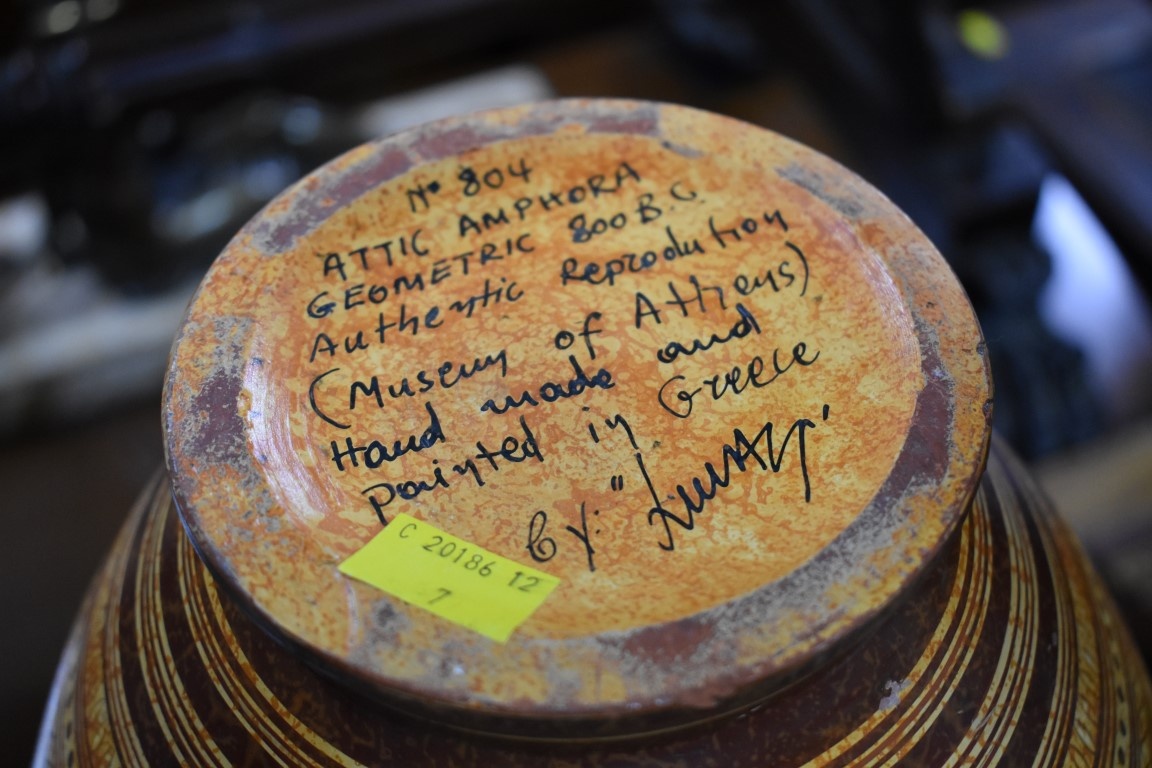 N° 804
ATTIC AMPHORA
GEOMETRIC 800 B.C.
Authentic Reprodution
(Museum of Athens)
Hand made and
painted in Greece
by: "
C 20186 12
7